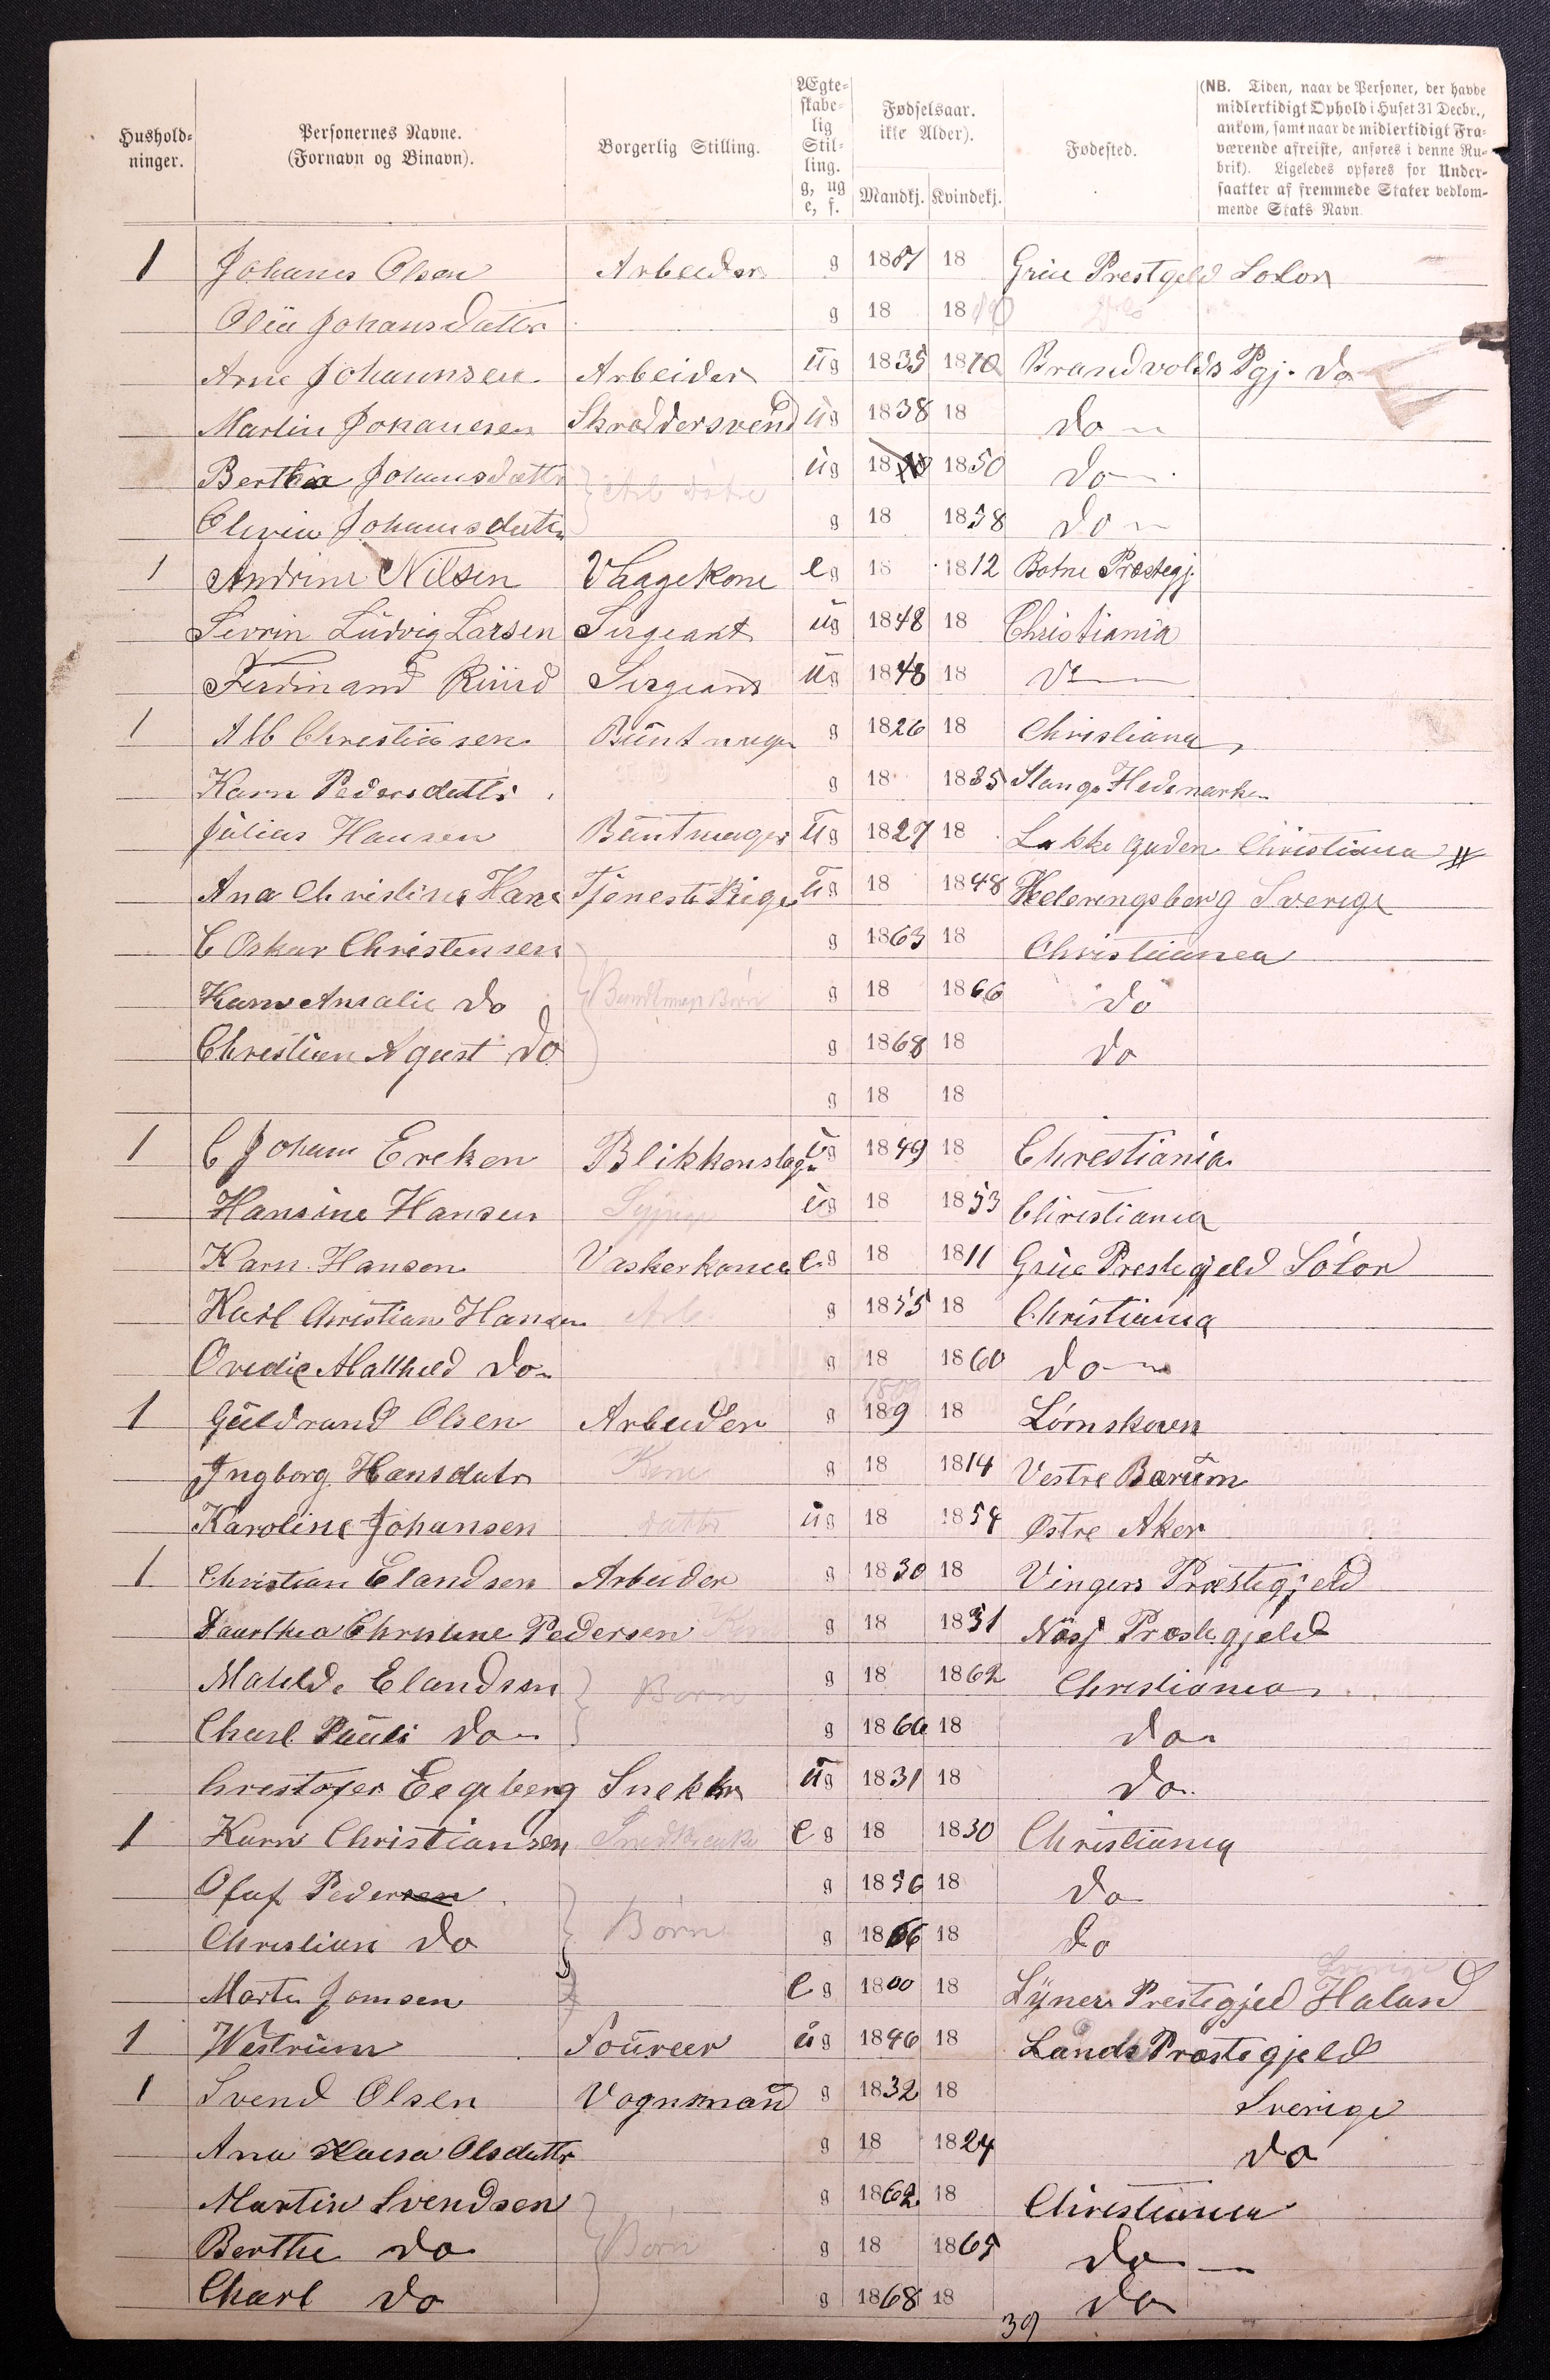 Hushold-
ninger.
Personernes Navne.
(Fornavn og Binavn).
Borgerlig Stilling.
Ægte-
skabe-
lig
Stil-
ling.
g, ug
e, f.
Fødselsaar.
ikke Alder).
Mandkj. Kvindekj.
Fødested.
(NB. Tiden, naar de Personer, der havde
midlertidigt Ophold i Huset 31 Decbr.,
ankom, samt naar de midlertidigt Fra-
værende afreiste, anføres i denne Ru-
brik). Ligeledes opføres for Under-
saatter af fremmede Stater vedkom-
mende Stats Navn.
1 Johanes Olsen Arbeider g 18 18 Grue Prestgeld Solør
Olia Johansdatter g 18 18
Arne Johannsen Arbeider ug 1835 18 Brandvolds Pgj. Do
Martin Johanesen Skræddersvend ug 1838 18 Do
Berthea Johansdattr ug 18 1850 Do
Johansdatter g 18 1858 Do
1 Andrine Nilsen Vaagekone eg 18 1812 Botne Præstegj.
Sevrin Ludvig Larsen Sergeant ug 1848 18 Christiania
Ferdinand Ruud Sergeant ug 1848 18 Do
1 Alb Christiasen Buntmager g 1826 18 Christiana
Karn Pedersdattr g 18 1835 Stange Hedemarken
Julius Hansen Buntmager ug 1827 18 Lakkegaden Christiania
Ana Christine Hane Tjeneste Pige ug 18 1848 Helsingsberg Sverige
C Oskar Christensen g 1863 18 Christianea
Karn Amalie Do Buntmag Børn g 18 1866 Do
Christian Agust Do g 1868 18 Do
g 18 18
1 C Johan Ereksen Blikkenslager ug 1849 18 Chrestiania
Hansine Hansen Sypige ug 18 1853 Christiania
Karn Hansen Vaskerkone eg 18 1811 Grue Prestegjeld Solør
Karl Christian Hansen Arb. g 1855 18 Christiania
Ovedie Mathild Do g 18 1860 Do
1 Guldrand Olsen Arbeider g 1809 189 18 Lømskoven
Ingborg Hansdatr Kone g 18 1814 Vestre Bærum
Karoline Johansen datter ug 18 1854 Østre Aker
1 Christian Elandsen Arbeider g 1830 18 Vingers Præstegjeld
Daarthea Christine Pedersen Kone g 18 1831 Næs Præstegjeld
Matilde Elandsen Børn g 18 1862 Christiania
Charl Pauli Do g 1866 18 Do
Crestofer Eegeberg Snekker ug 1831 18 Do
1 Karn Christiansen eg 18 1830 Christiania
Olaf Pedersen g 1856 18 Do
Christian Do Børn g 1866 18 Do
Marte Jomsen eg 1800 18 Prestegjed Haland Sverige
1 Westrum Foureer ug 1846 18 Lands Præstegjeld
1 Svend Olsen Vognmand g 1832 18 Sverige
Ana Kaisa Olsdattr g 18 1824 Do
Martin Svendsen g 1862 18 Christiania
Berthe Do Børn g 18 1865 Do
Charl Do g 1868 18 Do
39